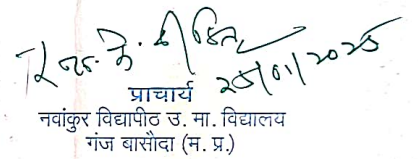 एस. के. दीक्षित
25/01/2025
प्राचार्य
नवांकुर विद्यापीठ उ. मा. विद्यालय
गंज बासौदा (म. प्र.)